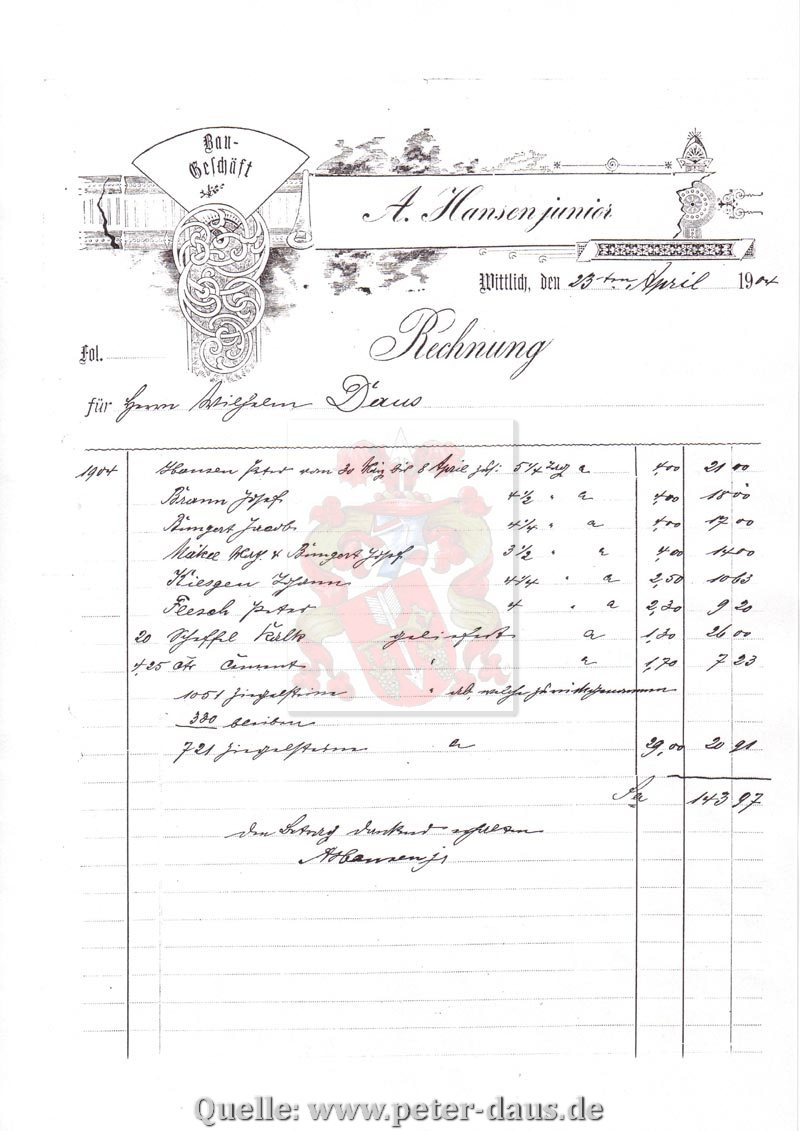 Bau-
Geschäft
A. Hansen junior.
Wittlich, den 23ten April 1904
Rechnung
Fol.
für Herrn Wilhelm Daus
1904 Hansen Peter vom 30 März bis 8 April 5 1/4 Tag a 4,00 21 00
Braun Josef 4 1/2 " a 4,00 18 00
Büngert Jacob 4 1/4 " a 4,00 17 00
& Büngert Josef 3 1/2 " a 4,00 14 00
Kiesgen Johann 4 1/4 " a 2,50 10 63
Flesch Peter 4 " a 2,30 9 20
20 Scheffel Kalk geliefert a 1,30 26 00
4,25 Ctr Cement " a 1,70 7 23
1051 Ziegelsteine " ab, welche zurückgenommen
330 bleiben
721 Ziegelsteine a 29,00 20 91
Sa 143 97
den Betrag dankend erhalten
A Hansen jr
Quelle: www.peter-daus.de